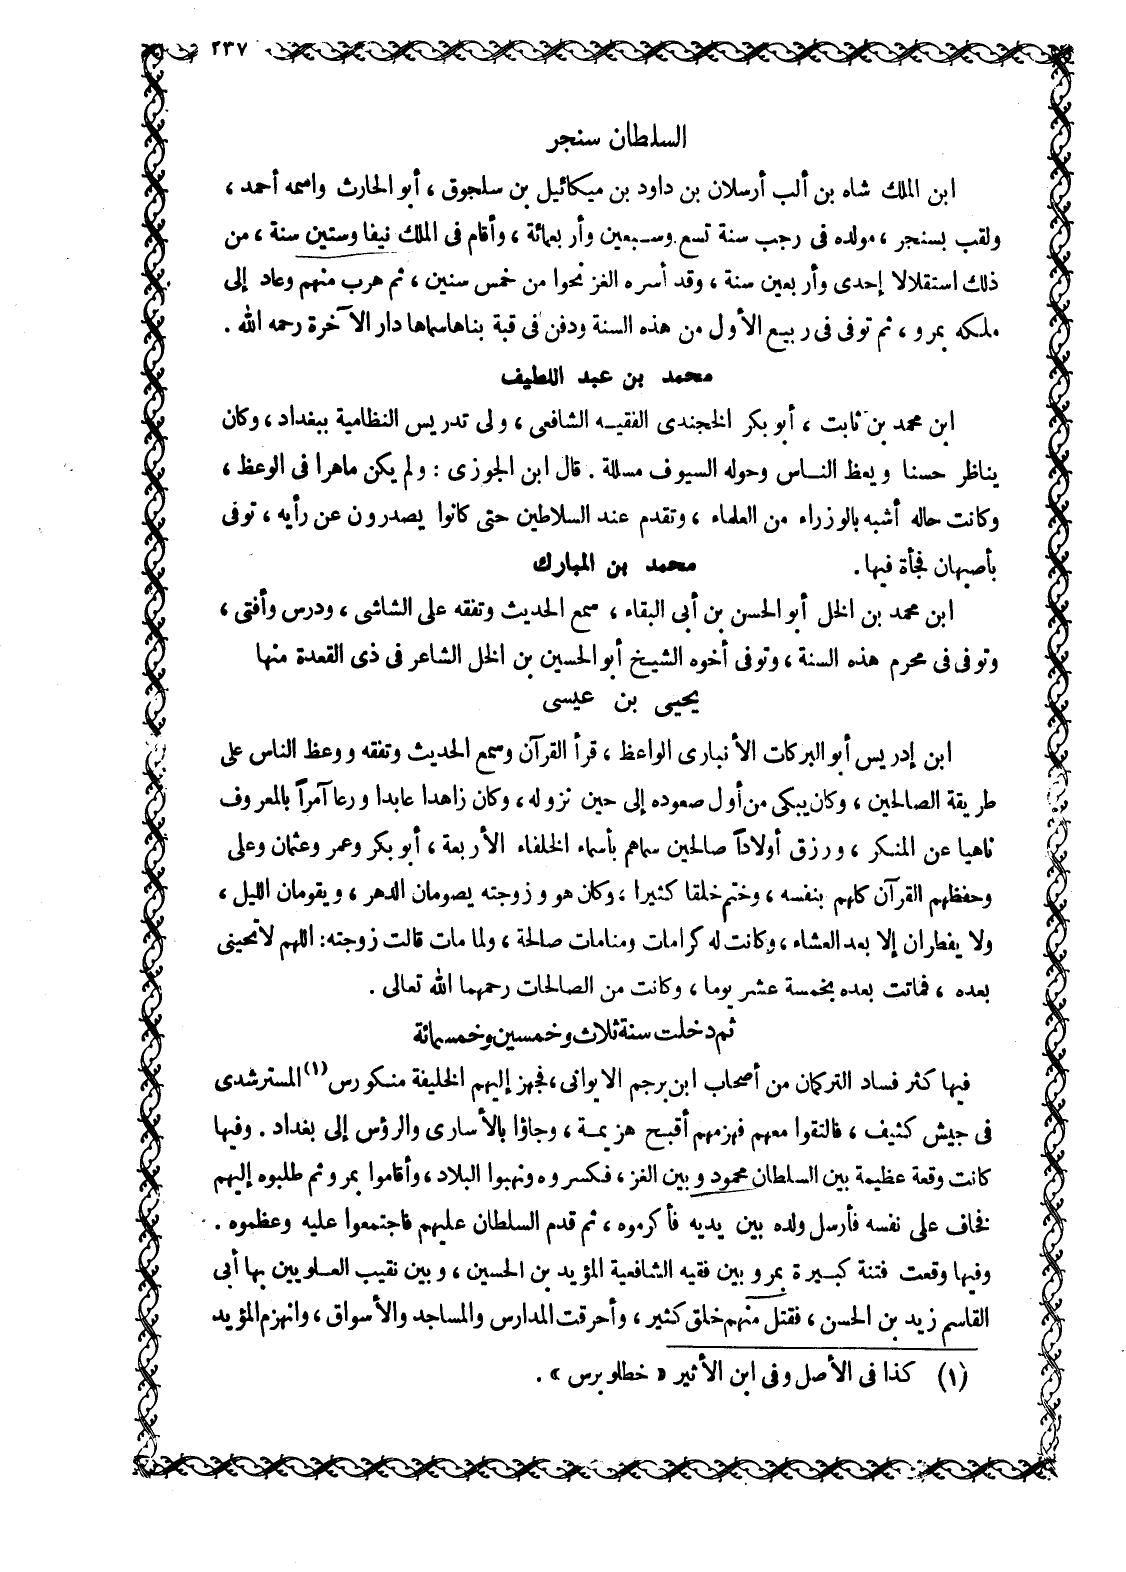 ٢٣٧
السلطان سنجر
ابن الملك شاه بن ألب أرسلان بن داود بن ميكائيل بن سلجوق ، أبو الحارث واسمه أحمد ،
ولقب بسنجر ، مولده فى رجب سنة تسع وسبعين وأربعمائة ، وأقام فى الملك نيفا وستين سنة ، من
ذلك استقلالا إحدى وأربعين سنة ، وقد أسره الغز نحوا من خمس سنين ، ثم هرب منهم وعاد إلى
ملكه بمرو ، ثم توفى فى ربيع الأول من هذه السنة ودفن فى قبة بناها سماها دار الآخرة رحمه الله .
محمد بن عبد اللطيف
ابن محمد بن ثابت ، أبو بكر الخجندى الفقيه الشافعى ، ولى تدريس النظامية ببغداد ، وكان
يناظر حسنا ويعظ الناس وحوله السيوف مسللة . قال ابن الجوزى : ولم يكن ماهرا فى الوعظ ،
وكانت حاله أشبه بالوزراء من العلماء ، وتقدم عند السلاطين حتى كانوا يصدرون عن رأيه ، توفى
بأصبهان فجأة فيها . محمد بن المبارك
ابن محمد بن الخل أبو الحسن بن أبى البقاء ، سمع الحديث وتفقه على الشاشى ، ودرس وأفتى ،
وتوفى فى محرم هذه السنة ، وتوفى أخوه الشيخ أبو الحسين بن الخل الشاعر فى ذى القعدة منها
يحيى بن عيسى
ابن إدريس أبو البركات الأنبارى الواعظ ، قرأ القرآن وسمع الحديث وتفقه ووعظ الناس على
طريقة الصالحين ، وكان يبكى من أول صعوده إلى حين نزوله ، وكان زاهدا عابدا ورعا آمراً بالمعروف
ناهيا عن المنكر ، ورزق أولاداً صالحين سماهم بأسماء الخلفاء الأربعة ، أبو بكر وعمر وعثمان وعلى
وحفظهم القرآن كلهم بنفسه ، وختم خلقا كثيرا ، وكان هو وزوجته يصومان الدهر ، ويقومان الليل ،
ولا يفطران إلا بعد العشاء ، وكانت له كرامات ومنامات صالحة ، ولما مات قالت زوجته : اللهم لا تحينى
بعده ، فماتت بعده بخمسة عشر يوما ، وكانت من الصالحات رحمهما الله تعالى .
ثم دخلت سنة ثلاث وخمسين وخمسمائة
فيها كثر فساد التركمان من أصحاب ابن برجم الايوانى ، فجهز إليهم الخليفة منكورس (١) المسترشدى
فى جيش كثيف ، فالتقوا معهم فهزمهم أقبح هزيمة ، وجاؤا بالأسارى والرؤس إلى بغداد . وفيها
كانت وقعة عظيمة بين السلطان محمود وبين الغز ، فكسروه ونهبوا البلاد ، وأقاموا بمرو ثم طلبوه إليهم
فخاف على نفسه فأرسل ولده بين يديه فأكرموه ، ثم قدم السلطان عليهم فاجتمعوا عليه وعظموه .
وفيها وقعت فتنة كبيرة بمرو بين فقيه الشافعية المؤيد بن الحسين ، وبين نقيب العلويين بها أبى
القاسم زيد بن الحسن ، فقتل منهم خلق كثير ، وأحرقت المدارس والمساجد والأسواق ، وانهزم المؤيد
(١) كذا فى الأصل وفى ابن الأثير « خطلو برس » .